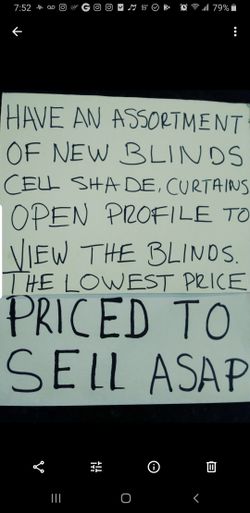 7:52
79%
HAVE AN ASSORTMENT
OF NEW BLINDS
CELL SHADE, CURTAINS
OPEN PROFILE TO
VIEW THE BLINDS.
THE LOWEST PRICE
PRICED TO
SELL ASAP